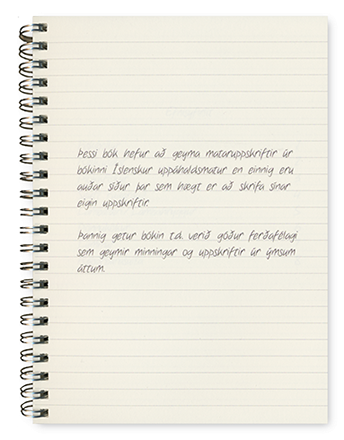 Þessi bók hefur að geyma mataruppskriftir úr
bókinni Íslenskur uppáhaldsmatur en einnig eru
auðar síður þar sem hægt er að skrifa sínar
eigin uppskriftir.
Þannig getur bókin t.d. verið góður ferðafélagi
sem geymir minningar og uppskriftir úr ýmsum
áttum.